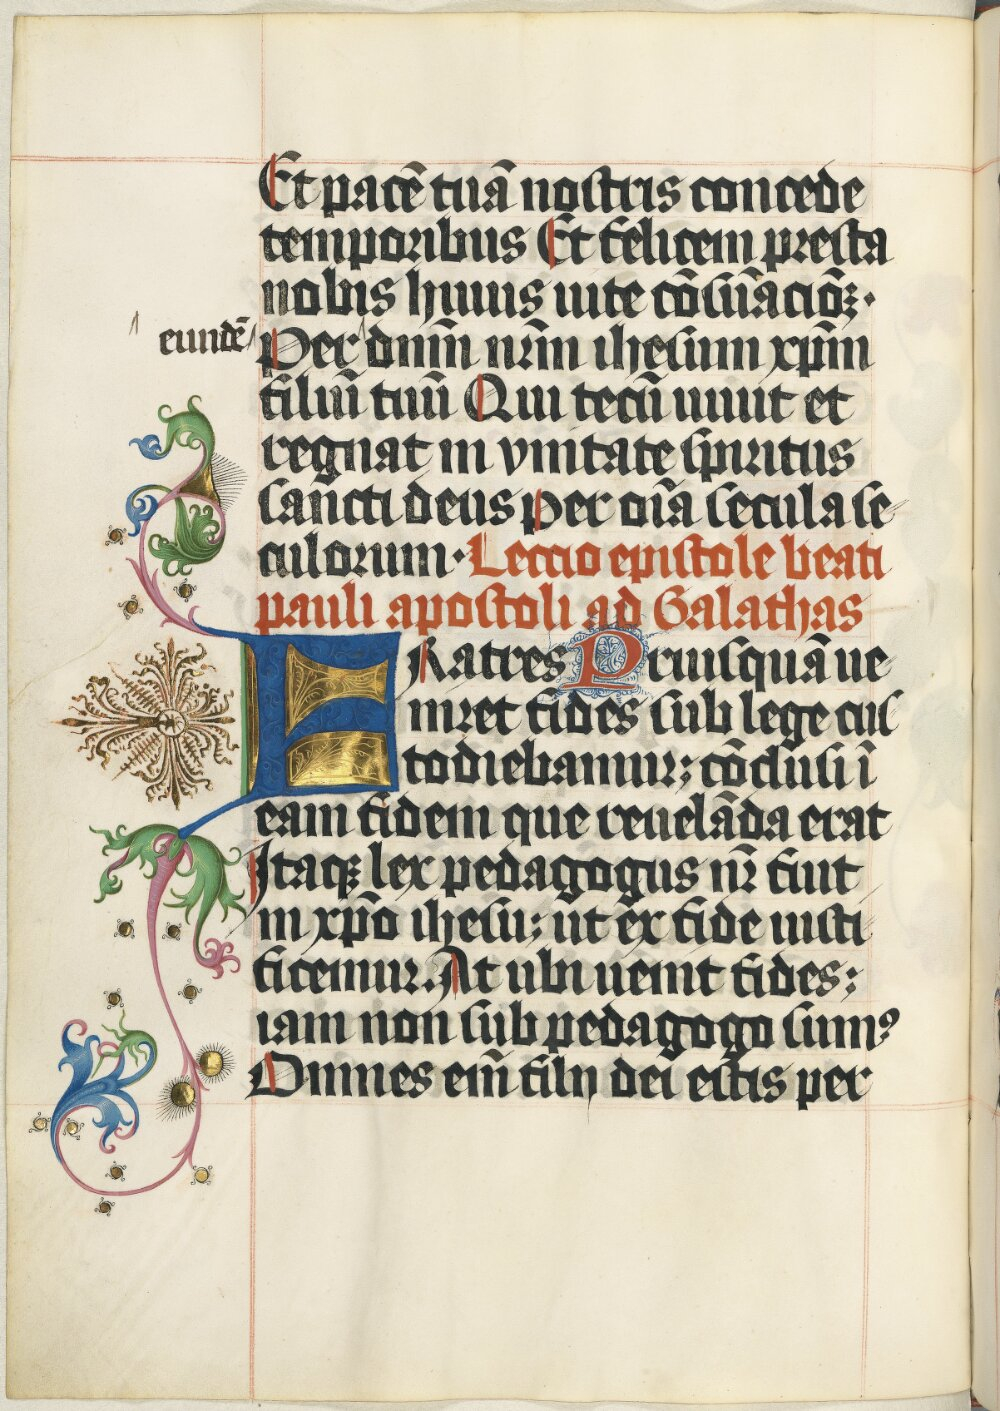 Et pacē tuā nostris concede
temporibus Et felicem presta
nobis huius uite cōsūaciōꝫ·
eundē
Per dnm̄ nr̄m ihesum xp̄m
filiū tuū Qui tecū uiuit et
regnat in vnitate spiritus
sancti deus per oīa secula se
culorum· Leccio epistole beati
pauli apostoli ad Galathas
FRatres Priusquā ue
niret fides sub lege cus
todiebamur; cōclusi ī
eam fidem que reuelāda erat
Itaqꝫ lex pedagogus nr̄ fuit
in xp̄o ihesu; ut ex fide iusti
ficemur. At ubi uenit fides;
iam non sub pedagogo sumꝰ
Omnes em̄ filij dei estis per